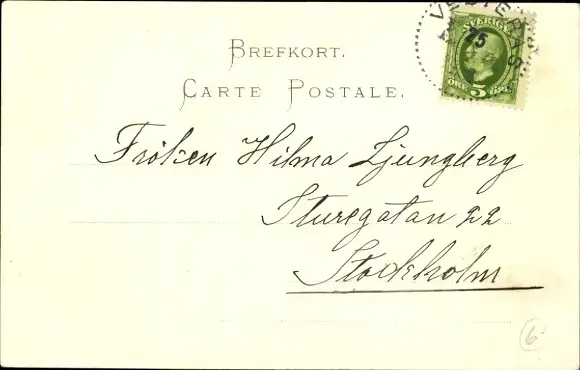 VESTERÅS
25
SVERIGE
5
ÖRE
BREFKORT.
CARTE POSTALE.
Fröken Hilma Ljungberg
Sturegatan 22
Stockholm
6